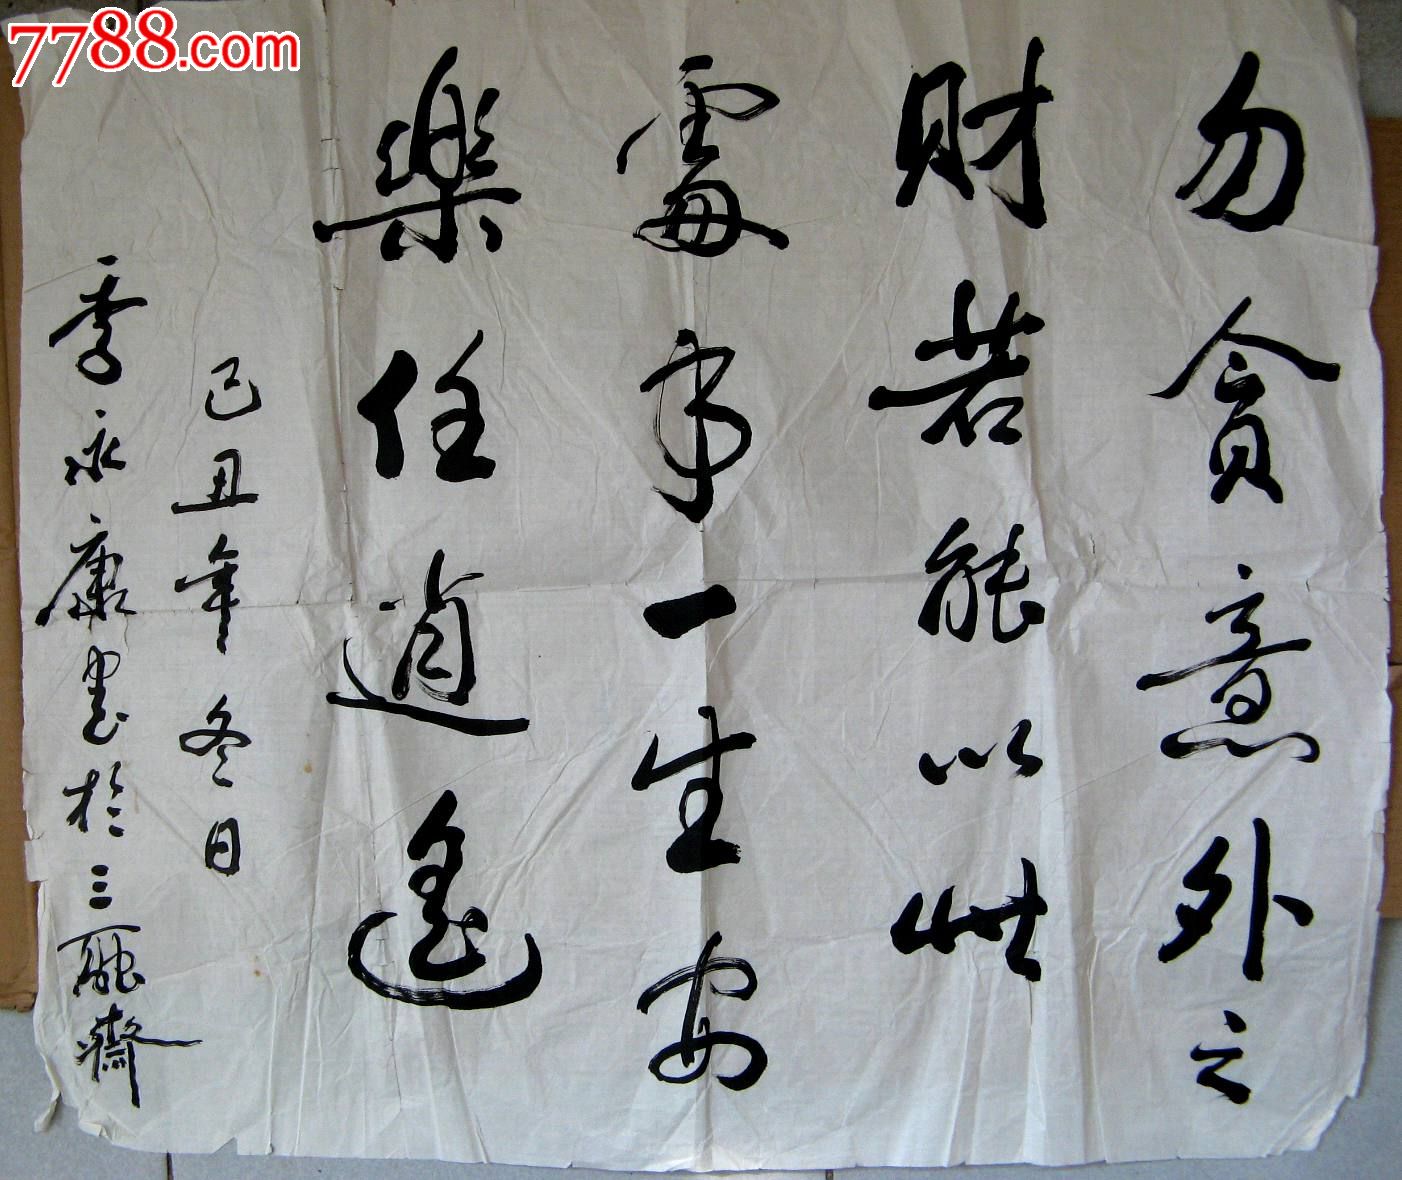 7788.com
勿貪意外之
財若能以此
處事一生安
樂任逍遙
己丑年冬日
季永康書於三融齋